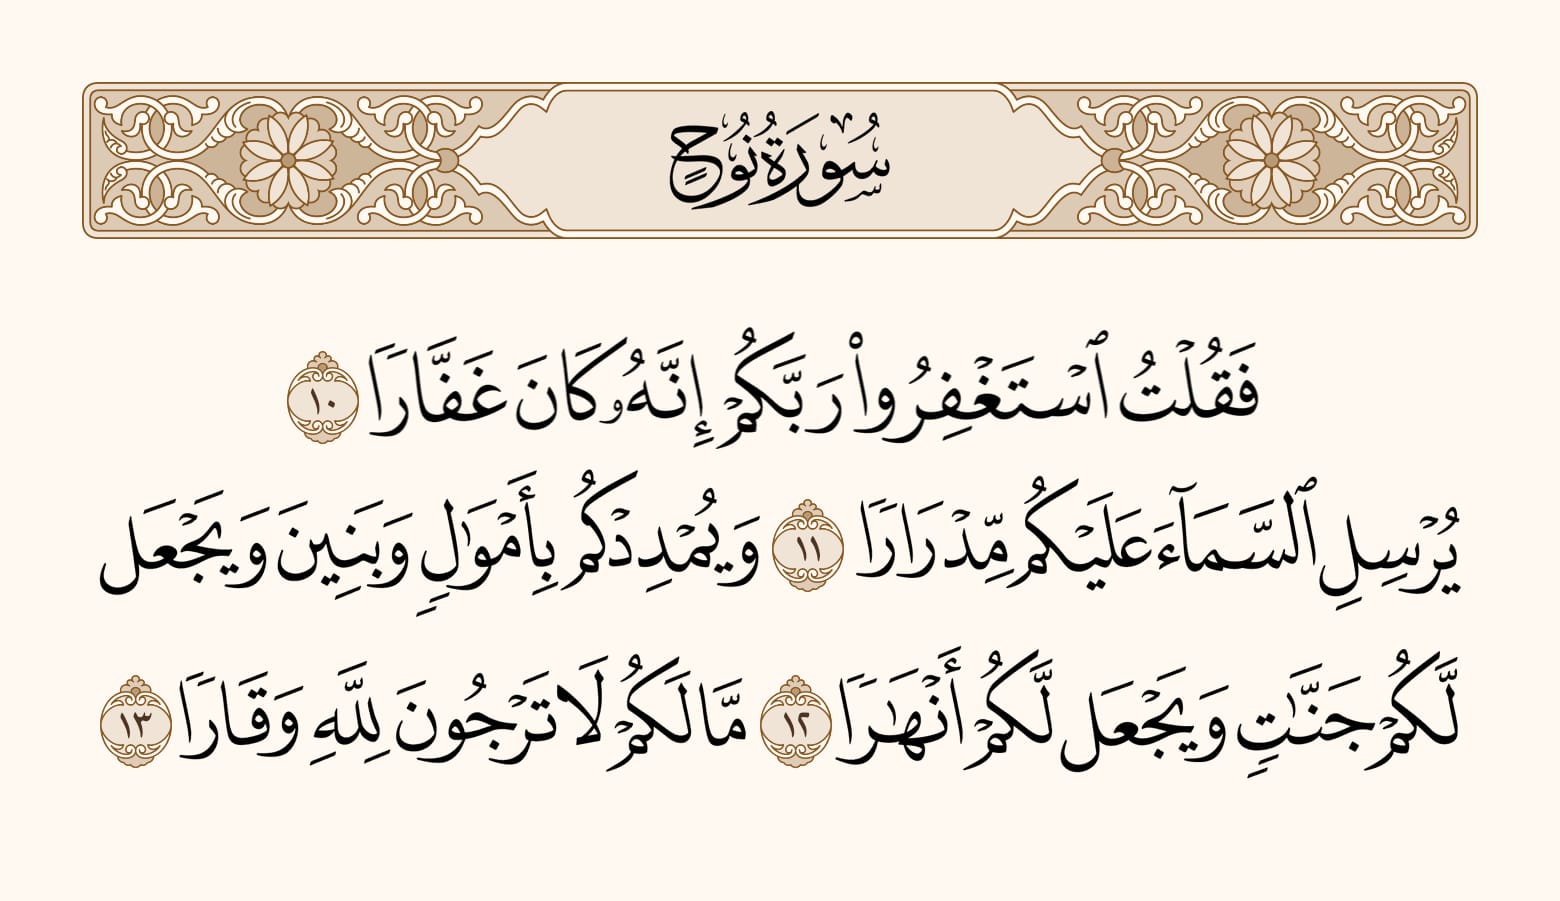 سُورَةُ نُوحٍ
فَقُلْتُ ٱسْتَغْفِرُوا۟ رَبَّكُمْ إِنَّهُۥ كَانَ غَفَّارًا ١٠
يُرْسِلِ ٱلسَّمَآءَ عَلَيْكُم مِّدْرَارًا ١١ وَيُمْدِدْكُم بِأَمْوَٰلٍ وَبَنِينَ وَيَجْعَل
لَّكُمْ جَنَّـٰتٍ وَيَجْعَل لَّكُمْ أَنْهَـٰرًا ١٢ مَّا لَكُمْ لَا تَرْجُونَ لِلَّهِ وَقَارًا ١٣